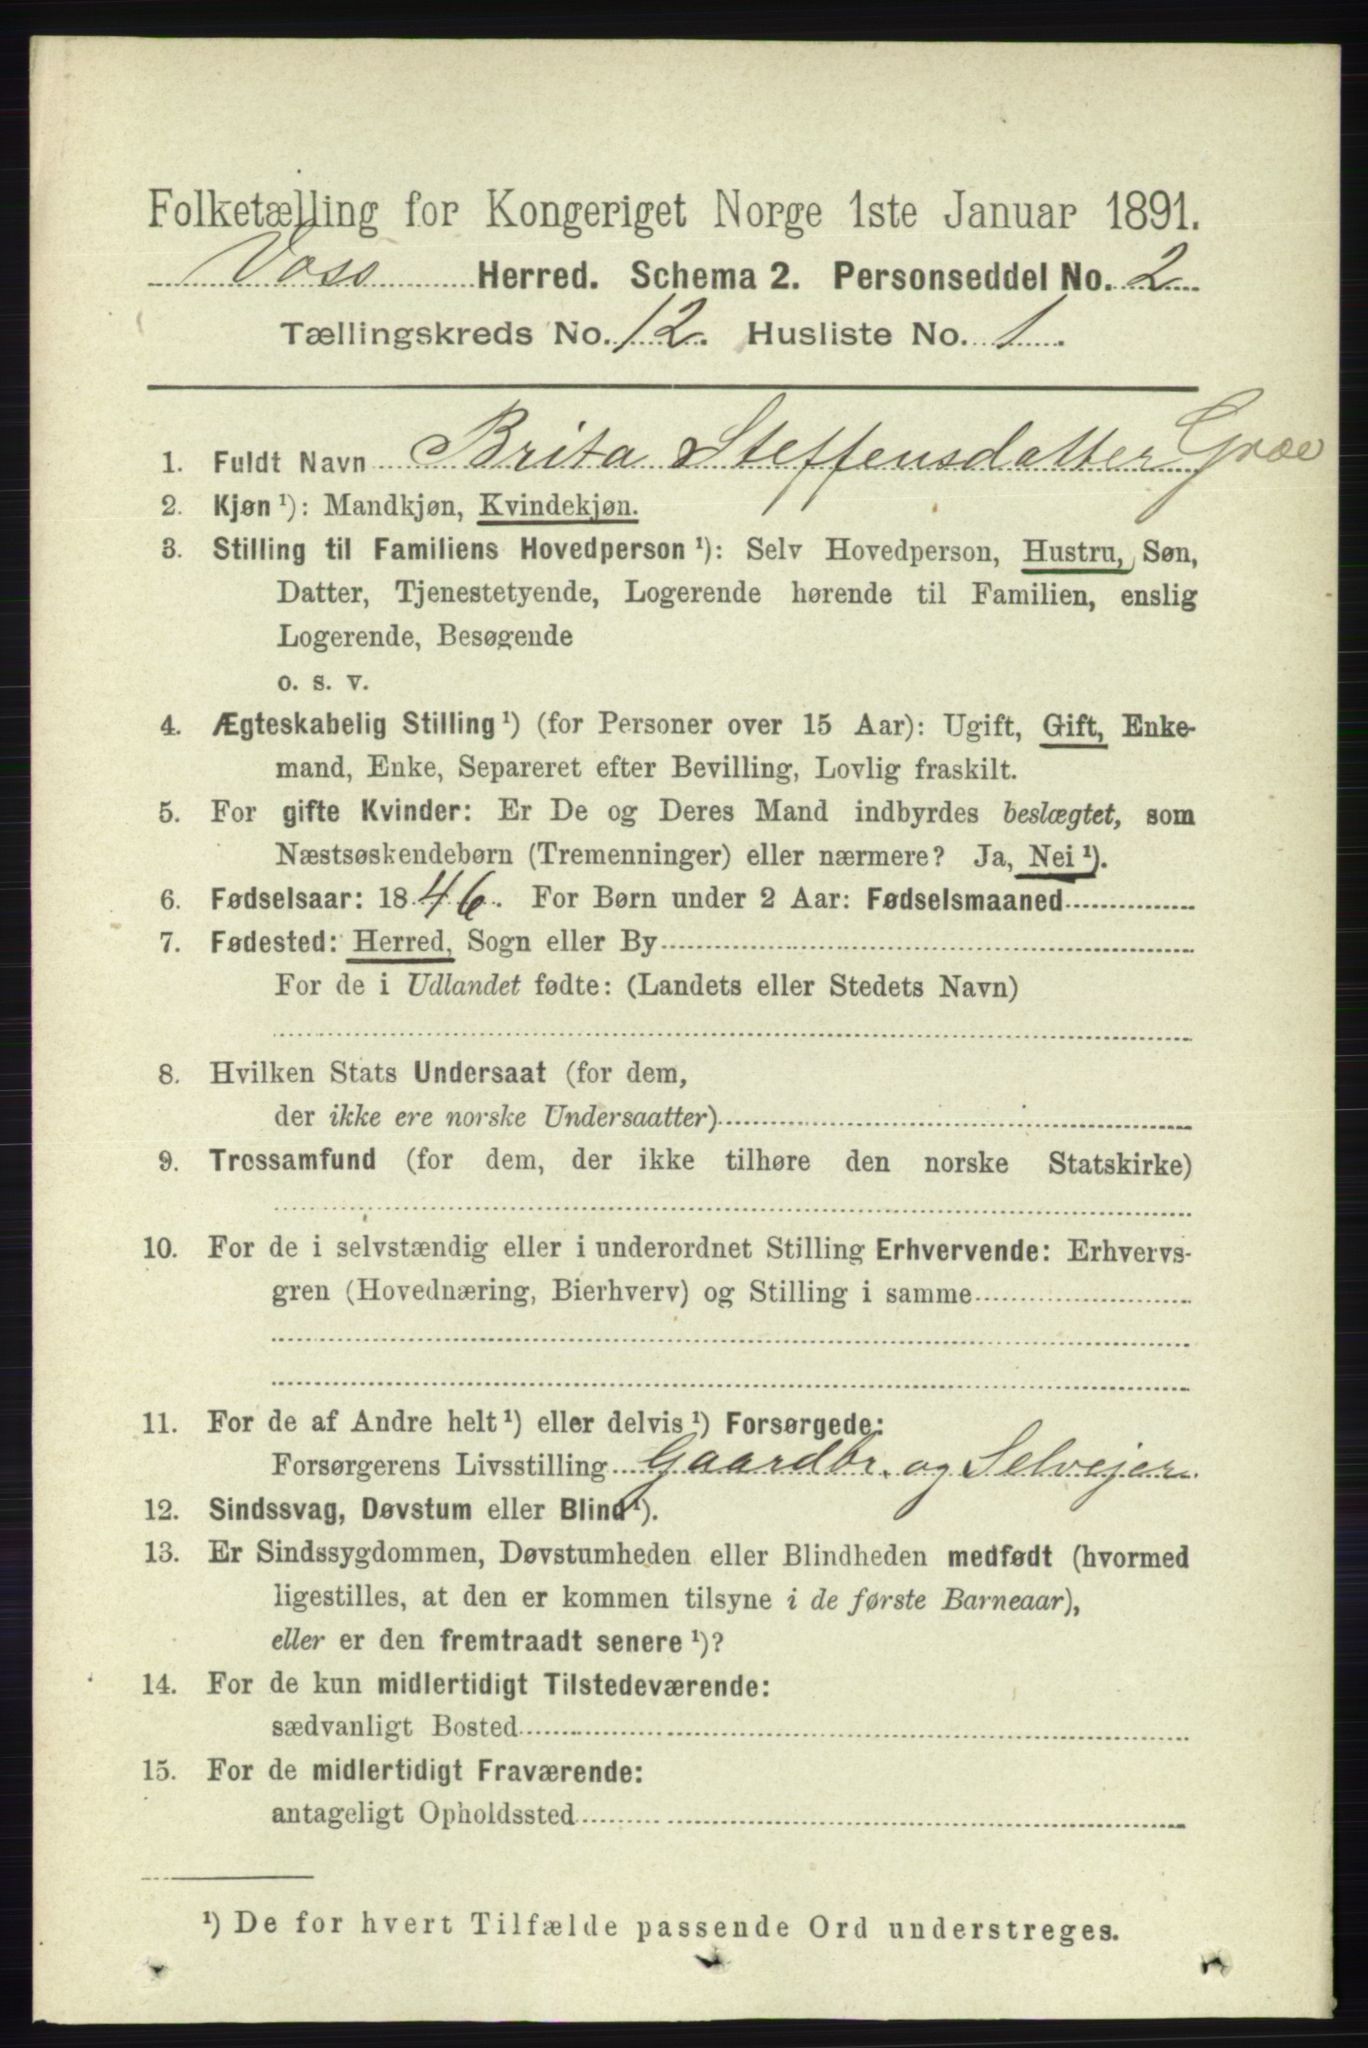 Folketælling for Kongeriget Norge 1ste Januar 1891.
Voss Herred. Schema 2. Personseddel No. 2
Tællingskreds No. 12. Husliste No. 1.
1. Fuldt Navn Brita Steffensdatter Groe
2. Kjøn ¹): Mandkjøn, Kvindekjøn.
3. Stilling til Familiens Hovedperson ¹): Selv Hovedperson, Hustru, Søn,
Datter, Tjenestetyende, Logerende hørende til Familien, enslig
Logerende, Besøgende
o. s. v.
4. Ægteskabelig Stilling ¹) (for Personer over 15 Aar): Ugift, Gift, Enke-
mand, Enke, Separeret efter Bevilling, Lovlig fraskilt.
5. For gifte Kvinder: Er De og Deres Mand indbyrdes beslægtet, som
Næstsøskendebørn (Tremenninger) eller nærmere? Ja, Nei ¹).
6. Fødselsaar: 1846. For Børn under 2 Aar: Fødselsmaaned
7. Fødested: Herred, Sogn eller By
For de i Udlandet fødte: (Landets eller Stedets Navn)
8. Hvilken Stats Undersaat (for dem,
der ikke ere norske Undersaatter)
9. Trossamfund (for dem, der ikke tilhøre den norske Statskirke)
10. For de i selvstændig eller i underordnet Stilling Erhvervende: Erhvervs-
gren (Hovednæring, Bierhverv) og Stilling i samme
11. For de af Andre helt ¹) eller delvis ¹) Forsørgede:
Forsørgerens Livsstilling Gaardbr. og Selvejer
12. Sindssvag, Døvstum eller Blind ¹).
13. Er Sindssygdommen, Døvstumheden eller Blindheden medfødt (hvormed
ligestilles, at den er kommen tilsyne i de første Barneaar),
eller er den fremtraadt senere ¹)?
14. For de kun midlertidigt Tilstedeværende:
sædvanligt Bosted
15. For de midlertidigt Fraværende:
antageligt Opholdssted
¹) De for hvert Tilfælde passende Ord understreges.